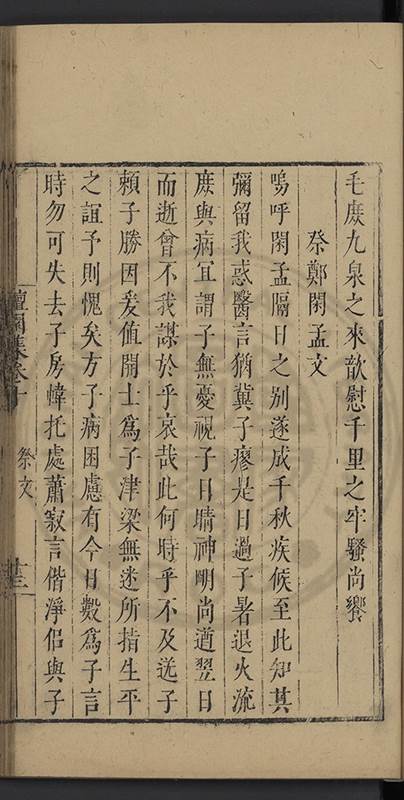 毛庻九泉之來歆慰千里之牢騷尚饗
祭鄭閑孟文
嗚呼閑孟隔日之别遂成千秋疾候至此知其
彌留我惑醫言猶冀子瘳是日過子暑退火流
庻與病宜謂子無憂視子目睛神明尚遒翌日
而逝曾不我謀於乎哀哉此何時乎不及送子
賴子勝因爰值開士爲子津梁無迷所指生平
之誼予則愧矣方子病困慮有今日數爲子言
時勿可失去子房幃托處蕭寂言偕淨侣與子
檀園集卷十
祭文
十三